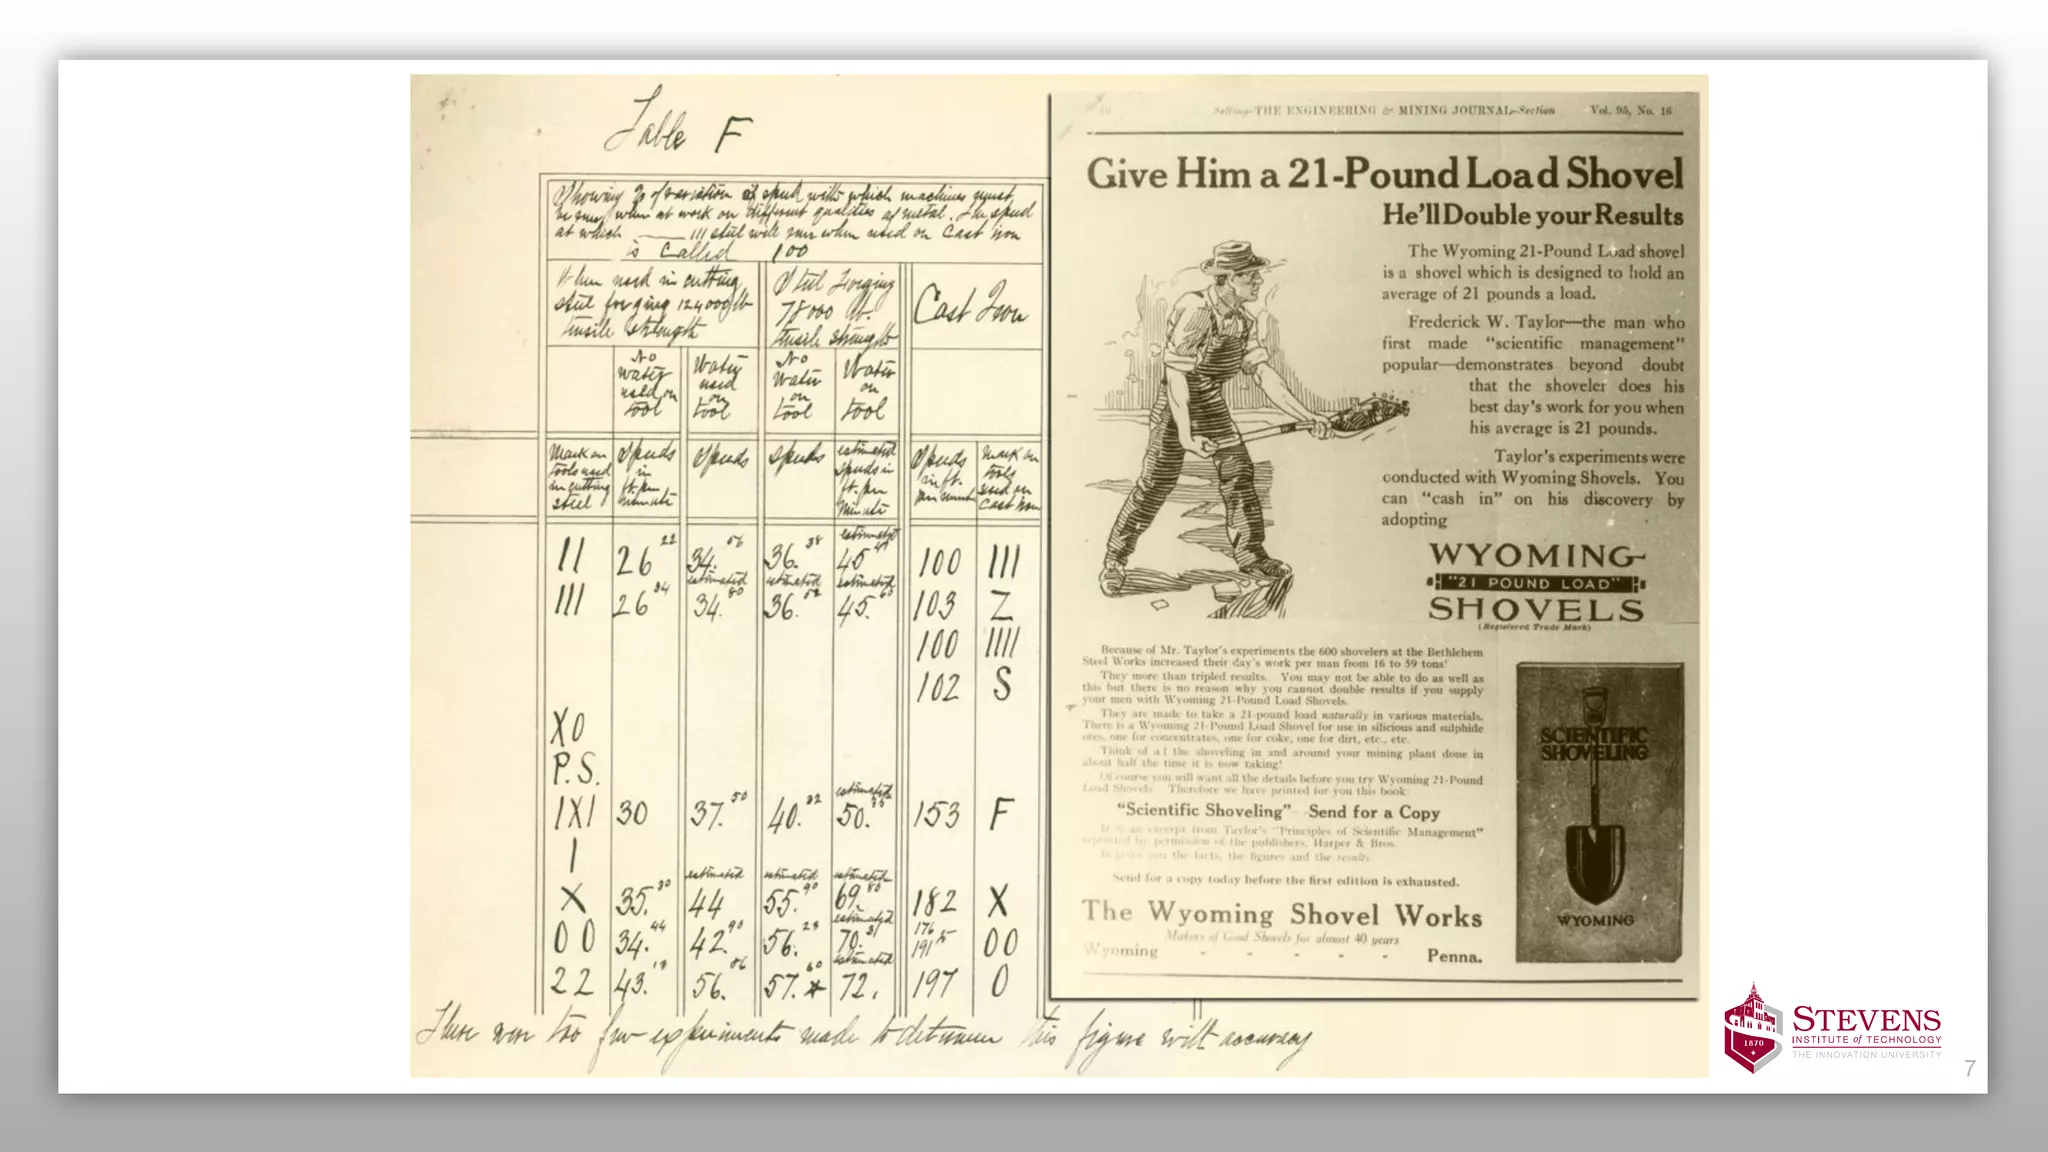 Table F
Showing % of variation of speed with which machines must
be run when at work on different qualities of metal. The speed
at which III steel will run when used on Cast iron
is called 100
When used in cutting
steel forging 124000 lb
tensile strength
Steel Forging
78000 lb.
tensile strength
Cast Iron
No
water
used on
tool
Water
used
on
tool
No
Water
on
tool
Water
on
tool
Mark on
tools used
in cutting
steel
Speeds
in
ft. per
minute
Speeds
Speeds
estimated
speeds in
ft. per
minute
Speeds
in ft.
per minute
mark on
tools
used on
Cast Iron
II 26 22 34. 56 36. 38 estimated 45 100 III
III 26 34 estimated 34. 80 estimated 36. 52 estimated 45. 60 103 Z
100 IIII
102 S
XO
P.S.
IXI 30 37. 50 40. 32 estimated 50. 153 F
I
X 35. 30 estimated 44 estimated 55. 90 estimated 69. 80 182 X
00 34. 44 42. 90 56. 28 estimated 70. 31 176 191 00
22 43. 18 56. 86 57. 60 * estimated 72. 197 0
There were too few experiments made to determine this figure with accuracy
Selling—THE ENGINEERING & MINING JOURNAL—Section Vol. 95, No. 16
Give Him a 21-Pound Load Shovel
He'll Double your Results
The Wyoming 21-Pound Load shovel
is a shovel which is designed to hold an
average of 21 pounds a load.
Frederick W. Taylor—the man who
first made "scientific management"
popular—demonstrates beyond doubt
that the shoveler does his
best day's work for you when
his average is 21 pounds.
Taylor's experiments were
conducted with Wyoming Shovels. You
can "cash in" on his discovery by
adopting
WYOMING
"21 POUND LOAD"
SHOVELS
(Registered Trade Mark)
Because of Mr. Taylor's experiments the 600 shovelers at the Bethlehem
Steel Works increased their day's work per man from 16 to 59 tons!
They more than tripled results. You may not be able to do as well as
this but there is no reason why you cannot double results if you supply
your men with Wyoming 21-Pound Load Shovels.
They are made to take a 21-pound load naturally in various materials.
There is a Wyoming 21-Pound Load Shovel for use in silicious and sulphide
ores, one for concentrates, one for coke, one for dirt, etc., etc.
Think of all the shoveling in and around your mining plant done in
about half the time it is now taking!
Of course you will want all the details before you try Wyoming 21-Pound
Load Shovels. Therefore we have printed for you this book:
"Scientific Shoveling" Send for a Copy
It is an excerpt from Taylor's "Principles of Scientific Management"
reprinted by permission of the publishers, Harper & Bros.
It gives you the facts, the figures and the results.
Send for a copy today before the first edition is exhausted.
The Wyoming Shovel Works
Makers of Good Shovels for almost 40 years
Wyoming - - - - - Penna.
SCIENTIFIC
SHOVELING
WYOMING
1870
STEVENS
INSTITUTE of TECHNOLOGY
THE INNOVATION UNIVERSITY
7